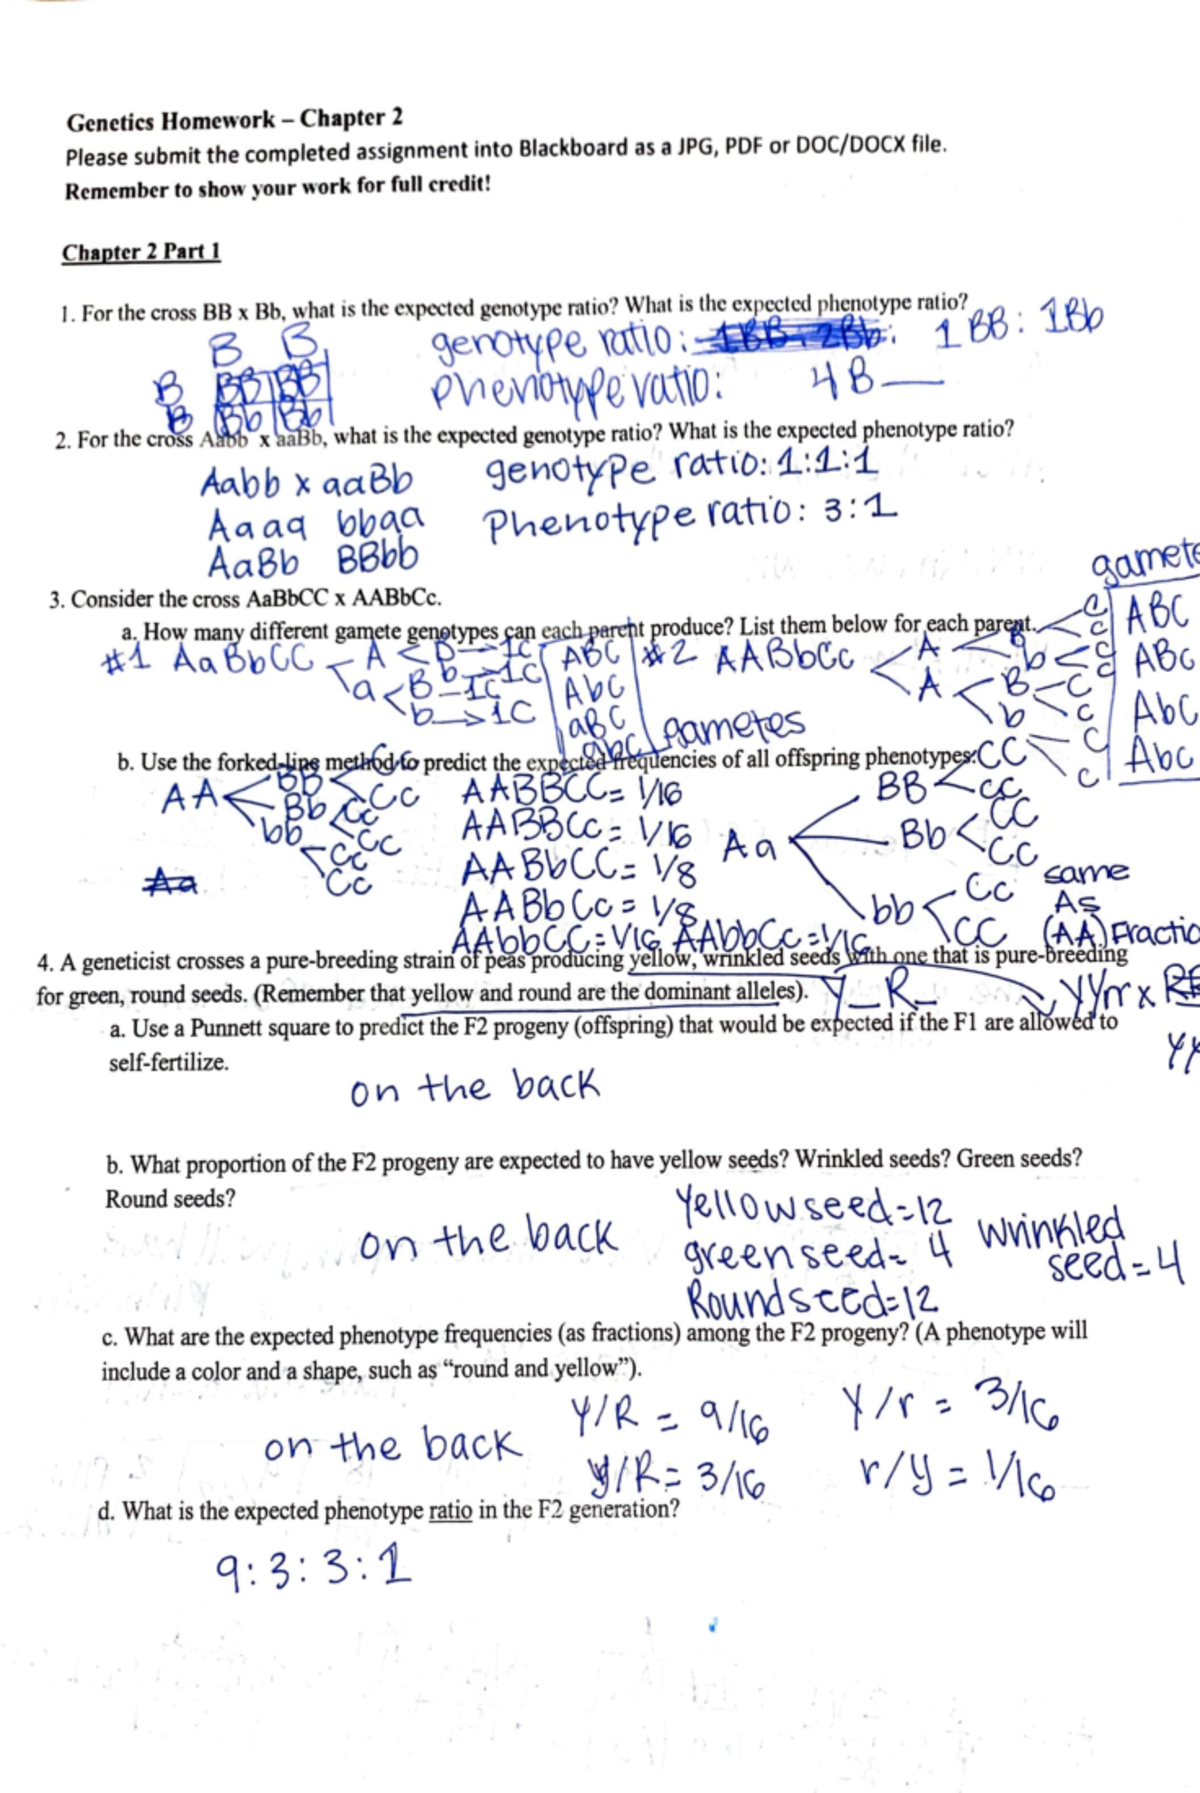 Genetics Homework – Chapter 2
Please submit the completed assignment into Blackboard as a JPG, PDF or DOC/DOCX file.
Remember to show your work for full credit!
Chapter 2 Part 1
1. For the cross BB x Bb, what is the expected genotype ratio? What is the expected phenotype ratio?
B B
B BB BB
B Bb Bb
genotype ratio: 1BB : 2Bb: 1 BB : 1Bb
Phenotype ratio: 4 B__
2. For the cross Aabb x aaBb, what is the expected genotype ratio? What is the expected phenotype ratio?
Aabb x aaBb
Aaaa bbaa
AaBb BBbb
genotype ratio: 1:1:1
Phenotype ratio: 3:1
3. Consider the cross AaBbCC x AABbCc.
a. How many different gamete genotypes can each parent produce? List them below for each parent.
#1 AaBbCC
A B → 1C
b → 1C
a B – 1C
b → 1C
ABC
AbC
aBC
abC
gametes
#2 AABbCc
A B C
c
b C
c
A B C
c
b C
c
gamete
ABC
ABc
AbC
Abc
b. Use the forked-line method to predict the expected frequencies of all offspring phenotypes.
AA
BB CC
Cc
Bb CC
Cc
bb CC
Cc
Aa
AABBCC = 1/16
AABBCc = 1/16
AABbCC = 1/8
AABbCc = 1/8
AAbbCC = 1/16 AAbbCc = 1/16
Aa
BB CC
Cc
Bb CC
Cc
bb Cc
CC
same
As
(AA) Fractio
4. A geneticist crosses a pure-breeding strain of peas producing yellow, wrinkled seeds with one that is pure-breeding
for green, round seeds. (Remember that yellow and round are the dominant alleles).
Y_R_
YYrr x
a. Use a Punnett square to predict the F2 progeny (offspring) that would be expected if the F1 are allowed to
self-fertilize.
on the back
b. What proportion of the F2 progeny are expected to have yellow seeds? Wrinkled seeds? Green seeds?
Round seeds?
on the back
Yellow seed = 12
green seed = 4
Round seed = 12
Wrinkled
seed = 4
c. What are the expected phenotype frequencies (as fractions) among the F2 progeny? (A phenotype will
include a color and a shape, such as “round and yellow”).
on the back
Y/R = 9/16
Y/r = 3/16
y/R = 3/16
r/y = 1/16
d. What is the expected phenotype ratio in the F2 generation?
9:3:3:1